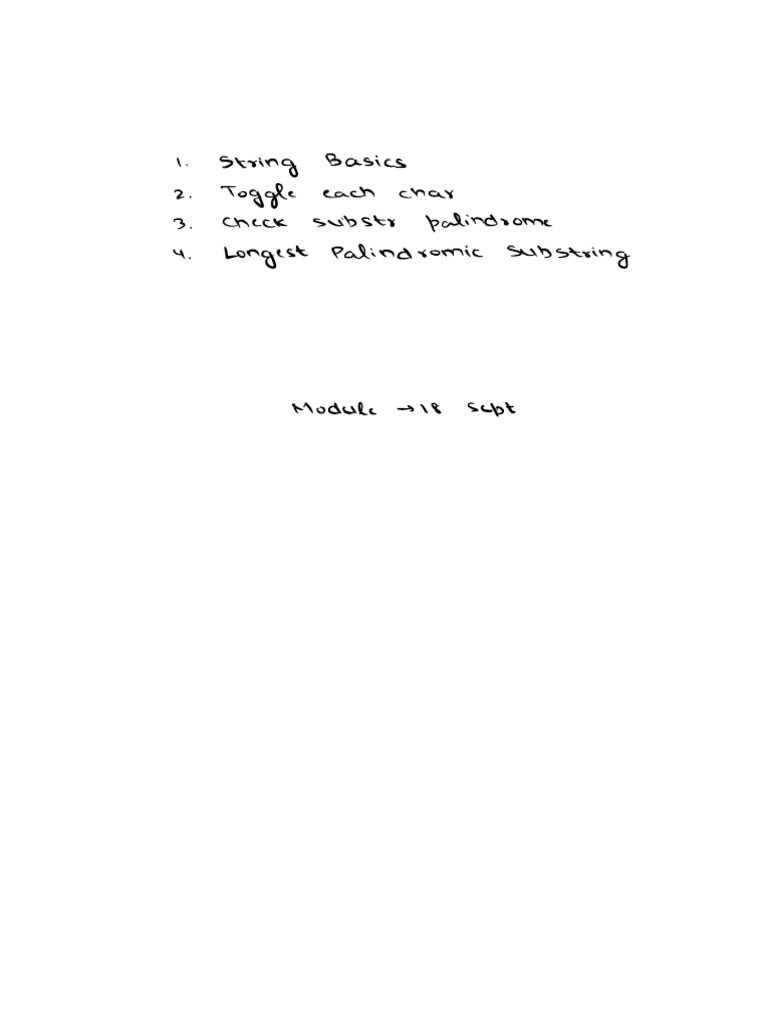 1. String Basics
2. Toggle each char
3. Check substr palindrome
4. Longest Palindromic Substring
Module → 18 Sept